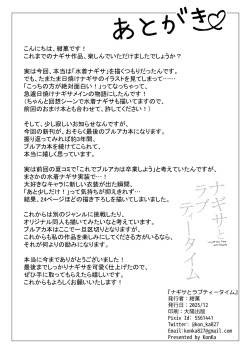 あとがき♡
こんにちは、紺菓です！
これまでのナギサ作品、楽しんでいただけましたでしょうか？
実は今回、本当は「水着ナギサ」を描くつもりだったんです。
でも、たまたま日焼けナギサのイラストを見てしまって……
「こっちの方が絶対面白い！」ってなっちゃって、
急遽日焼けナギサメインの物語にしたんです！
（ちゃんと回想シーンで水着ナギサも描いてますので、
前回のおまけ本とも合わせて、許してください……）
そして、少し寂しいお知らせなんですが、
今回の新刊が、おそらく最後のブルアカ本になります。
振り返ってみれば約3年間、
ブルアカ本を続けてこられて、
本当に嬉しく思っています。
実は前回の夏コミで「これでブルアカは卒業しよう」と考えていたんですが、
まさかの水着ナギサ実装で…！
大好きなキャラに新しい衣装が出た瞬間、
「あと少しだけ！」って気持ちが抑えきれず…
結果、24ページほどの描き下ろしを描いてしまいました。
これからは別のジャンルに挑戦したり、
オリジナル同人も描いてみたいなと考えています。
ブルアカ本はここで一区切りとなりますが、
これからも私の作品を楽しみにしてくださる方がいるなら、
引き続き応援していただけると嬉しいです。
本当に今までありがとうございました！
最後までしっかりナギサを可愛く仕上げたので、
ぜひ手に取ってもらえたら嬉しいです！
これからもよろしくお願いいたします！
ナギサと
ラブティータイム
『ナギサとラブティータイム』
発行者：紺菓
発行日：2025/12
印刷：大陽出版
Pixiv Id: 5561441
Twitter: @kon_ka827
Email:konka827@gmail.com
Presented by KonKa